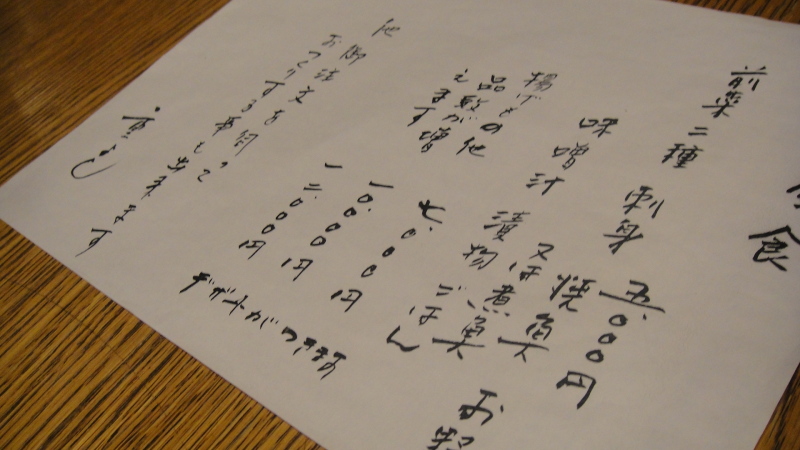 食
五、〇〇〇円
前菜二種
刺身
焼魚
又は煮魚
味噌汁
漬物
ごはん
七、〇〇〇円
揚げもの他
品数が増
えます
一〇、〇〇〇円
一二、〇〇〇円
デザートがつきます
他
御注文を伺って
おつくりする事も出来ます